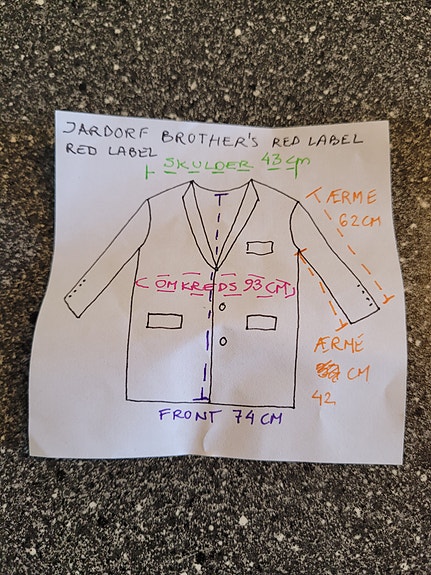 JARDORF BROTHER'S RED LABEL
RED LABEL
SKULDER 43 cm
ÆRME
62CM
OMKREDS 93 CM
ÆRME
CM
42
FRONT 74 CM